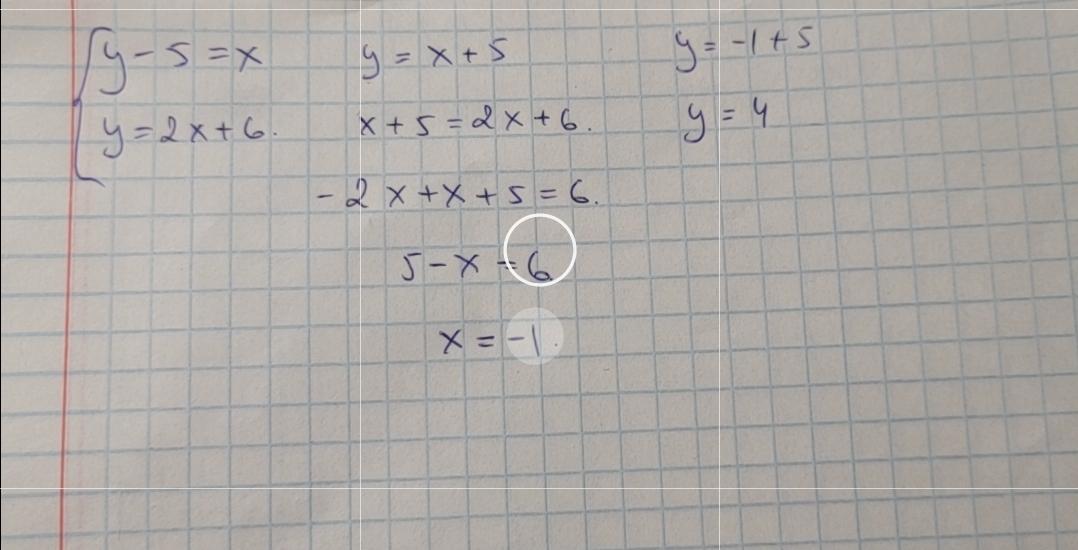 y - 5 = x
y = 2x + 6.
y = x + 5
x + 5 = 2x + 6.
-2x + x + 5 = 6.
5 - x = 6
x = -1.
y = -1 + 5
y = 4